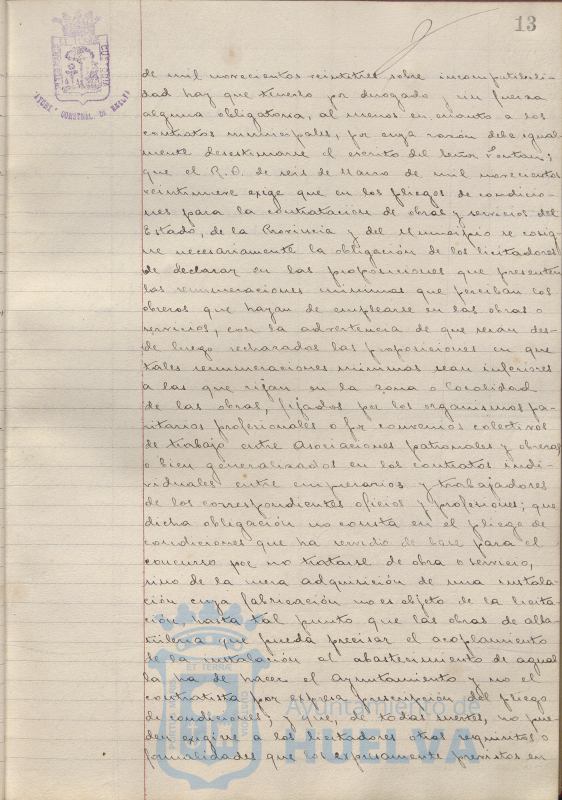 13
de mil novecientos veintitres sobre incompatibili-
dad hay que tenerlo por derogado y sin fuerza
alguna obligatoria, al menos en cuanto a los
contratos municipales, por cuya razón debe igual-
mente desestimarse el escrito del Señor
que el R.D. de seis de Marzo de mil novecientos
veintinueve exige que en los pliegos de condicio-
nes para la contratación de obras y servicios del
Estado, de la Provincia y del Municipio se consig-
ne necesariamente la obligación de los licitadores
de declarar en las proposiciones que presenten
las remuneraciones minimas que perciban los
obreros que hayan de emplearse en las obras o
servicios, con la advertencia de que seran des-
de luego rechazadas las proposiciones en que
tales remuneraciones minimas sean inferiores
a las que rijan en la zona o localidad
de las obras, fijados por los organismos pa-
ritarios profesionales o por convenios colectivos
de trabajo entre Asociaciones patronales y obreras
o bien generalizados en los contratos indi-
viduales entre empresarios y trabajadores
de los correspondientes oficios y profesiones; que
dicha obligación no consta en el pliego de
condiciones que ha servido de base para el
concurso por no tratarse de obra o servicio,
sino de la mera adquisición de una instala-
ción cuya fabricación no es objeto de la licita-
ción, hasta tal punto que las obras de alba-
ñileria que pueda precisar el acoplamiento
de la instalación al abastecimiento de aguas
la ha de hacer el Ayuntamiento y no el
contratista por expresa prescripción del pliego
de condiciones; y que, de todas suertes, no pue-
den exigirse a los licitadores otros requisitos o
formalidades que los expresamente previstos en
Ayuntamiento de
HUELVA